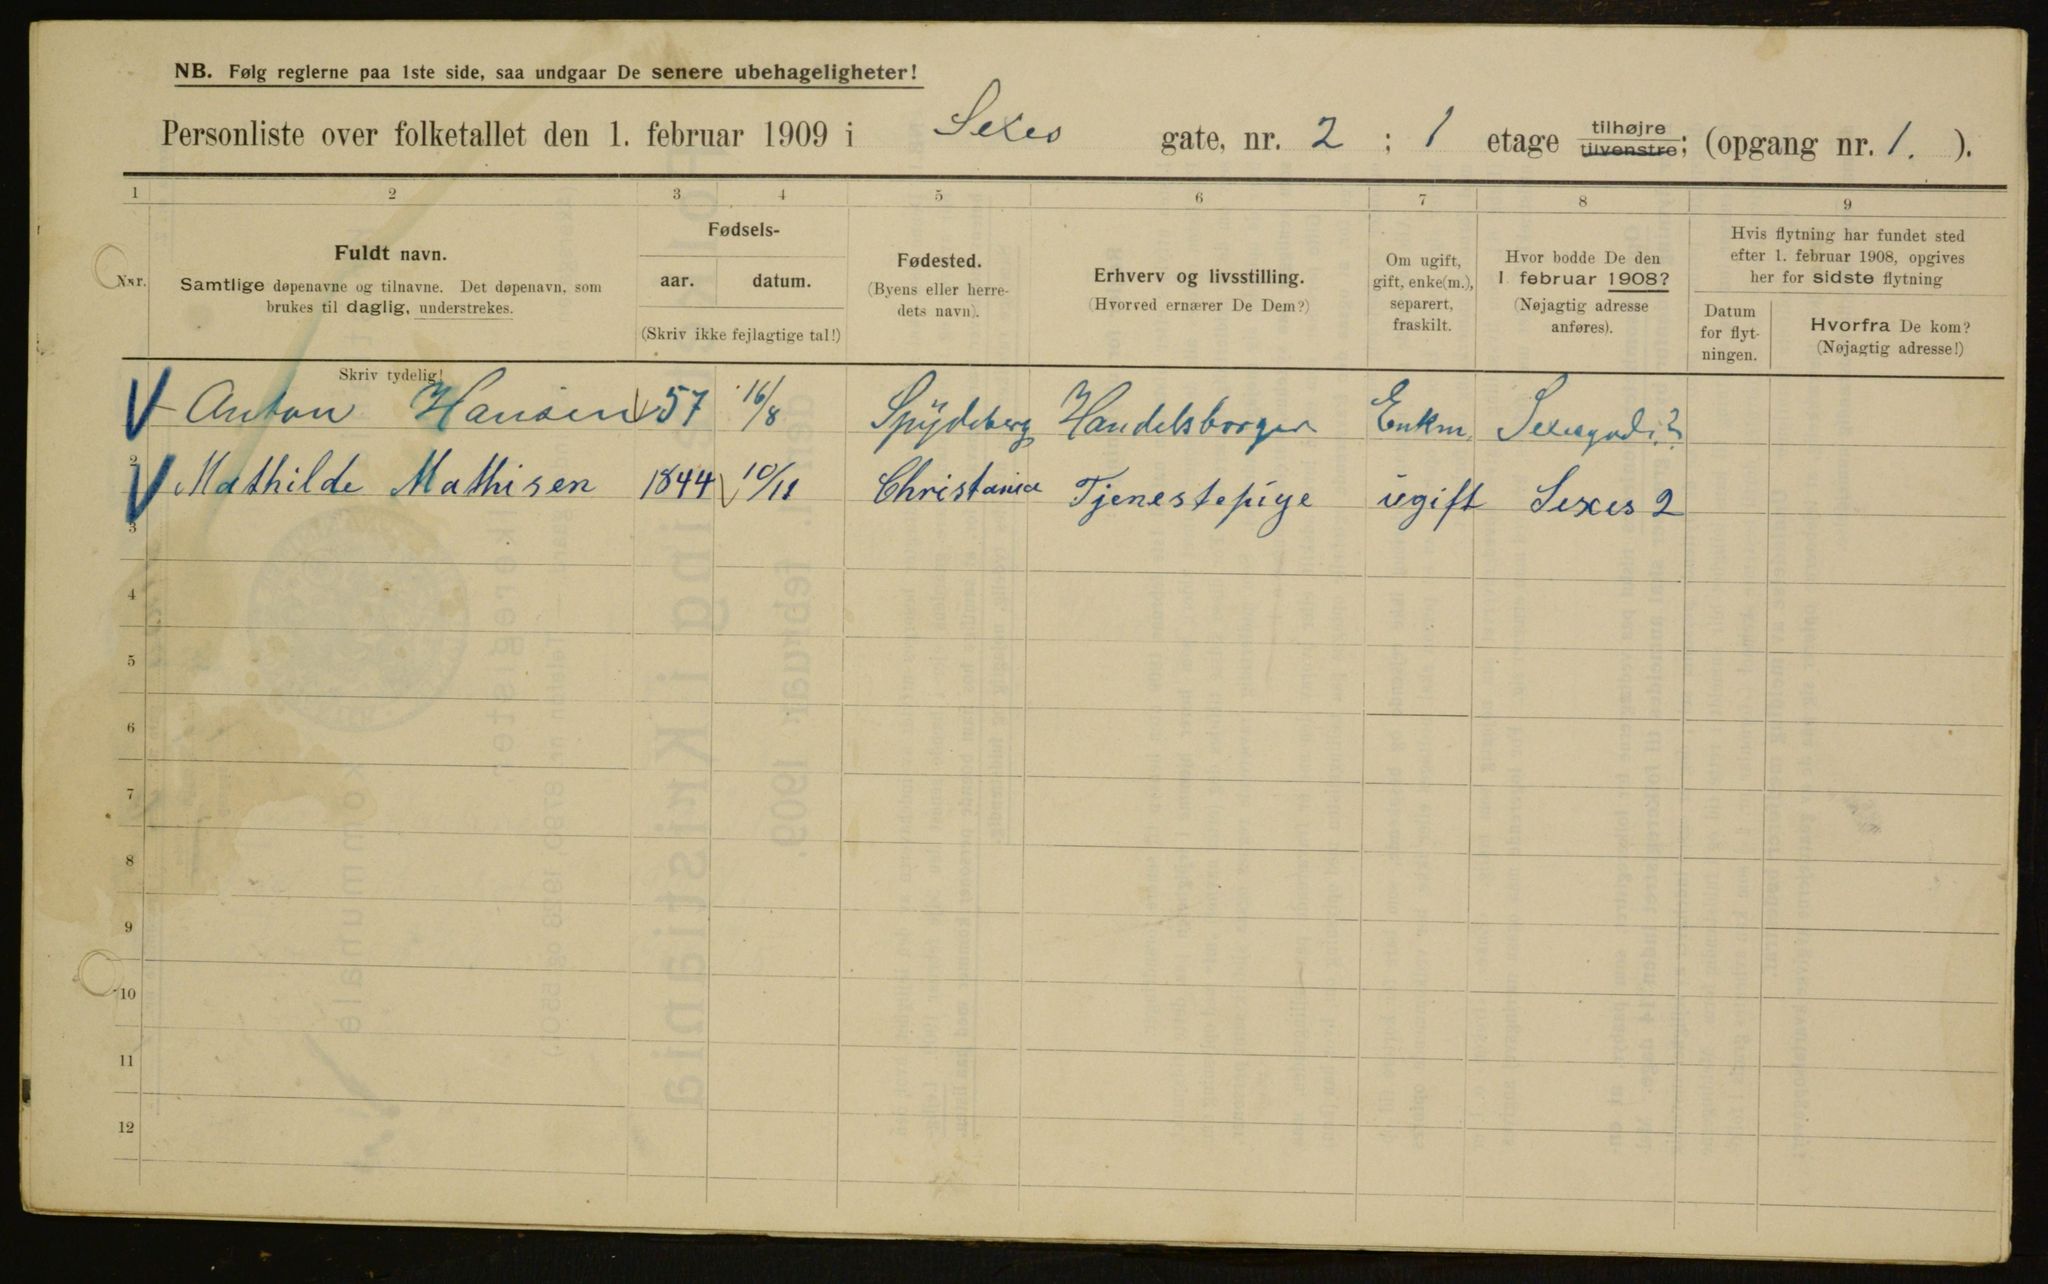 NB. Følg reglerne paa 1ste side, saa undgaar De senere ubehageligheter!
Personliste over folketallet den 1. februar 1909 i Sexes gate, nr. 2 ; 1 etage tilhøjre tilvenstre; (opgang nr. 1. ).
1 2 3 4 5 6 7 8 9
Nnr.
Fuldt navn.
Samtlige døpenavne og tilnavne. Det døpenavn, som
brukes til daglig, understrekes.
Fødsels-
aar. datum.
(Skriv ikke fejlagtige tal!)
Fødested.
(Byens eller herre-
dets navn).
Erhverv og livsstilling.
(Hvorved ernærer De Dem?)
Om ugift,
gift, enke(m.),
separert,
fraskilt.
Hvor bodde De den
1. februar 1908?
(Nøjagtig adresse
anføres).
Hvis flytning har fundet sted
efter 1. februar 1908, opgives
her for sidste flytning
Datum
for flyt-
ningen.
Hvorfra De kom?
(Nøjagtig adresse!)
Skriv tydelig!
Anton Hansen 57 16/8 Spydeberg Handelsborger Enkm. Sexesgad. 2
2 Mathilde Mathisen 1844 10/11 Christania Tjenestepige ugift Sexes 2
3
4
5
6
7
8
9
10
11
12